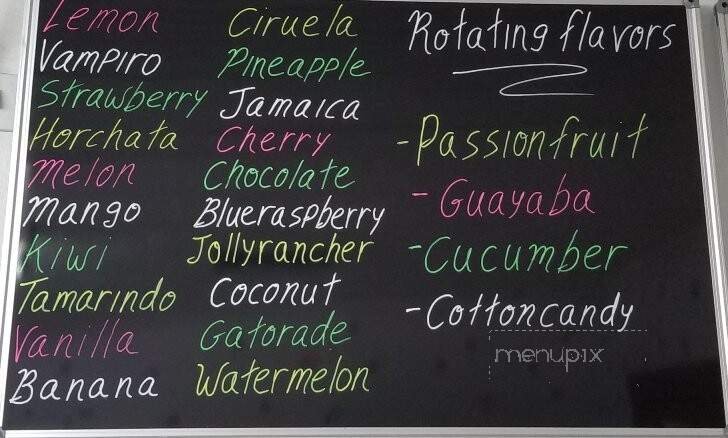 Lemon
Vampiro
Strawberry
Horchata
Melon
Mango
Kiwi
Tamarindo
Vanilla
Banana
Ciruela
Pineapple
Jamaica
Cherry
Chocolate
Blueraspberry
Jollyrancher
Coconut
Gatorade
Watermelon
Rotating flavors
-Passionfruit
-Guayaba
-Cucumber
-Cottoncandy
menupix